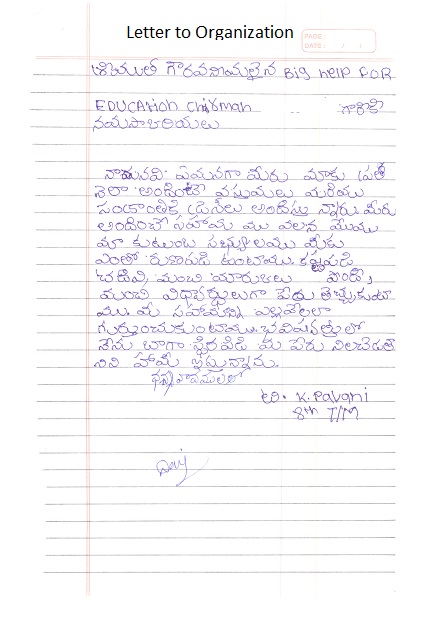 Letter to Organization
PAGE:
DATE: / /
శ్రీయుత గౌరవనీయులైన Big help FOR
EDUCAtion chairman గారికి
నమస్కారియలు
నామనవి ఏమనగా మీరు మాకు ప్రతి
నెలా అందించే వస్తువులు మరియు
సంక్రాంతికి డ్రెస్‌లు అందిస్తు న్నారు. మీరు
అందించే సహాయ ము వలన మేము
మా కుటుంబ సభ్యులము మీకు
ఎంతో రుణపడి ఉంటాము. కష్టపడి
చదివి, మంచి మార్కులు పొంది
మంచి విధ్యార్థులుగా పేరు తెచ్చుకుంటా
ము. మీ సహాయాన్ని ఎల్లవేళలా
గుర్తుంచుకుంటాము. భవిషత్తు లో
నేను బాగా స్థిరపడి మీ పేరు నిలబెడతా
నని హామీ ఇస్తున్నాను.
ధన్యవాదములతో
ఇట్లు. K. Pavani
8th T/M